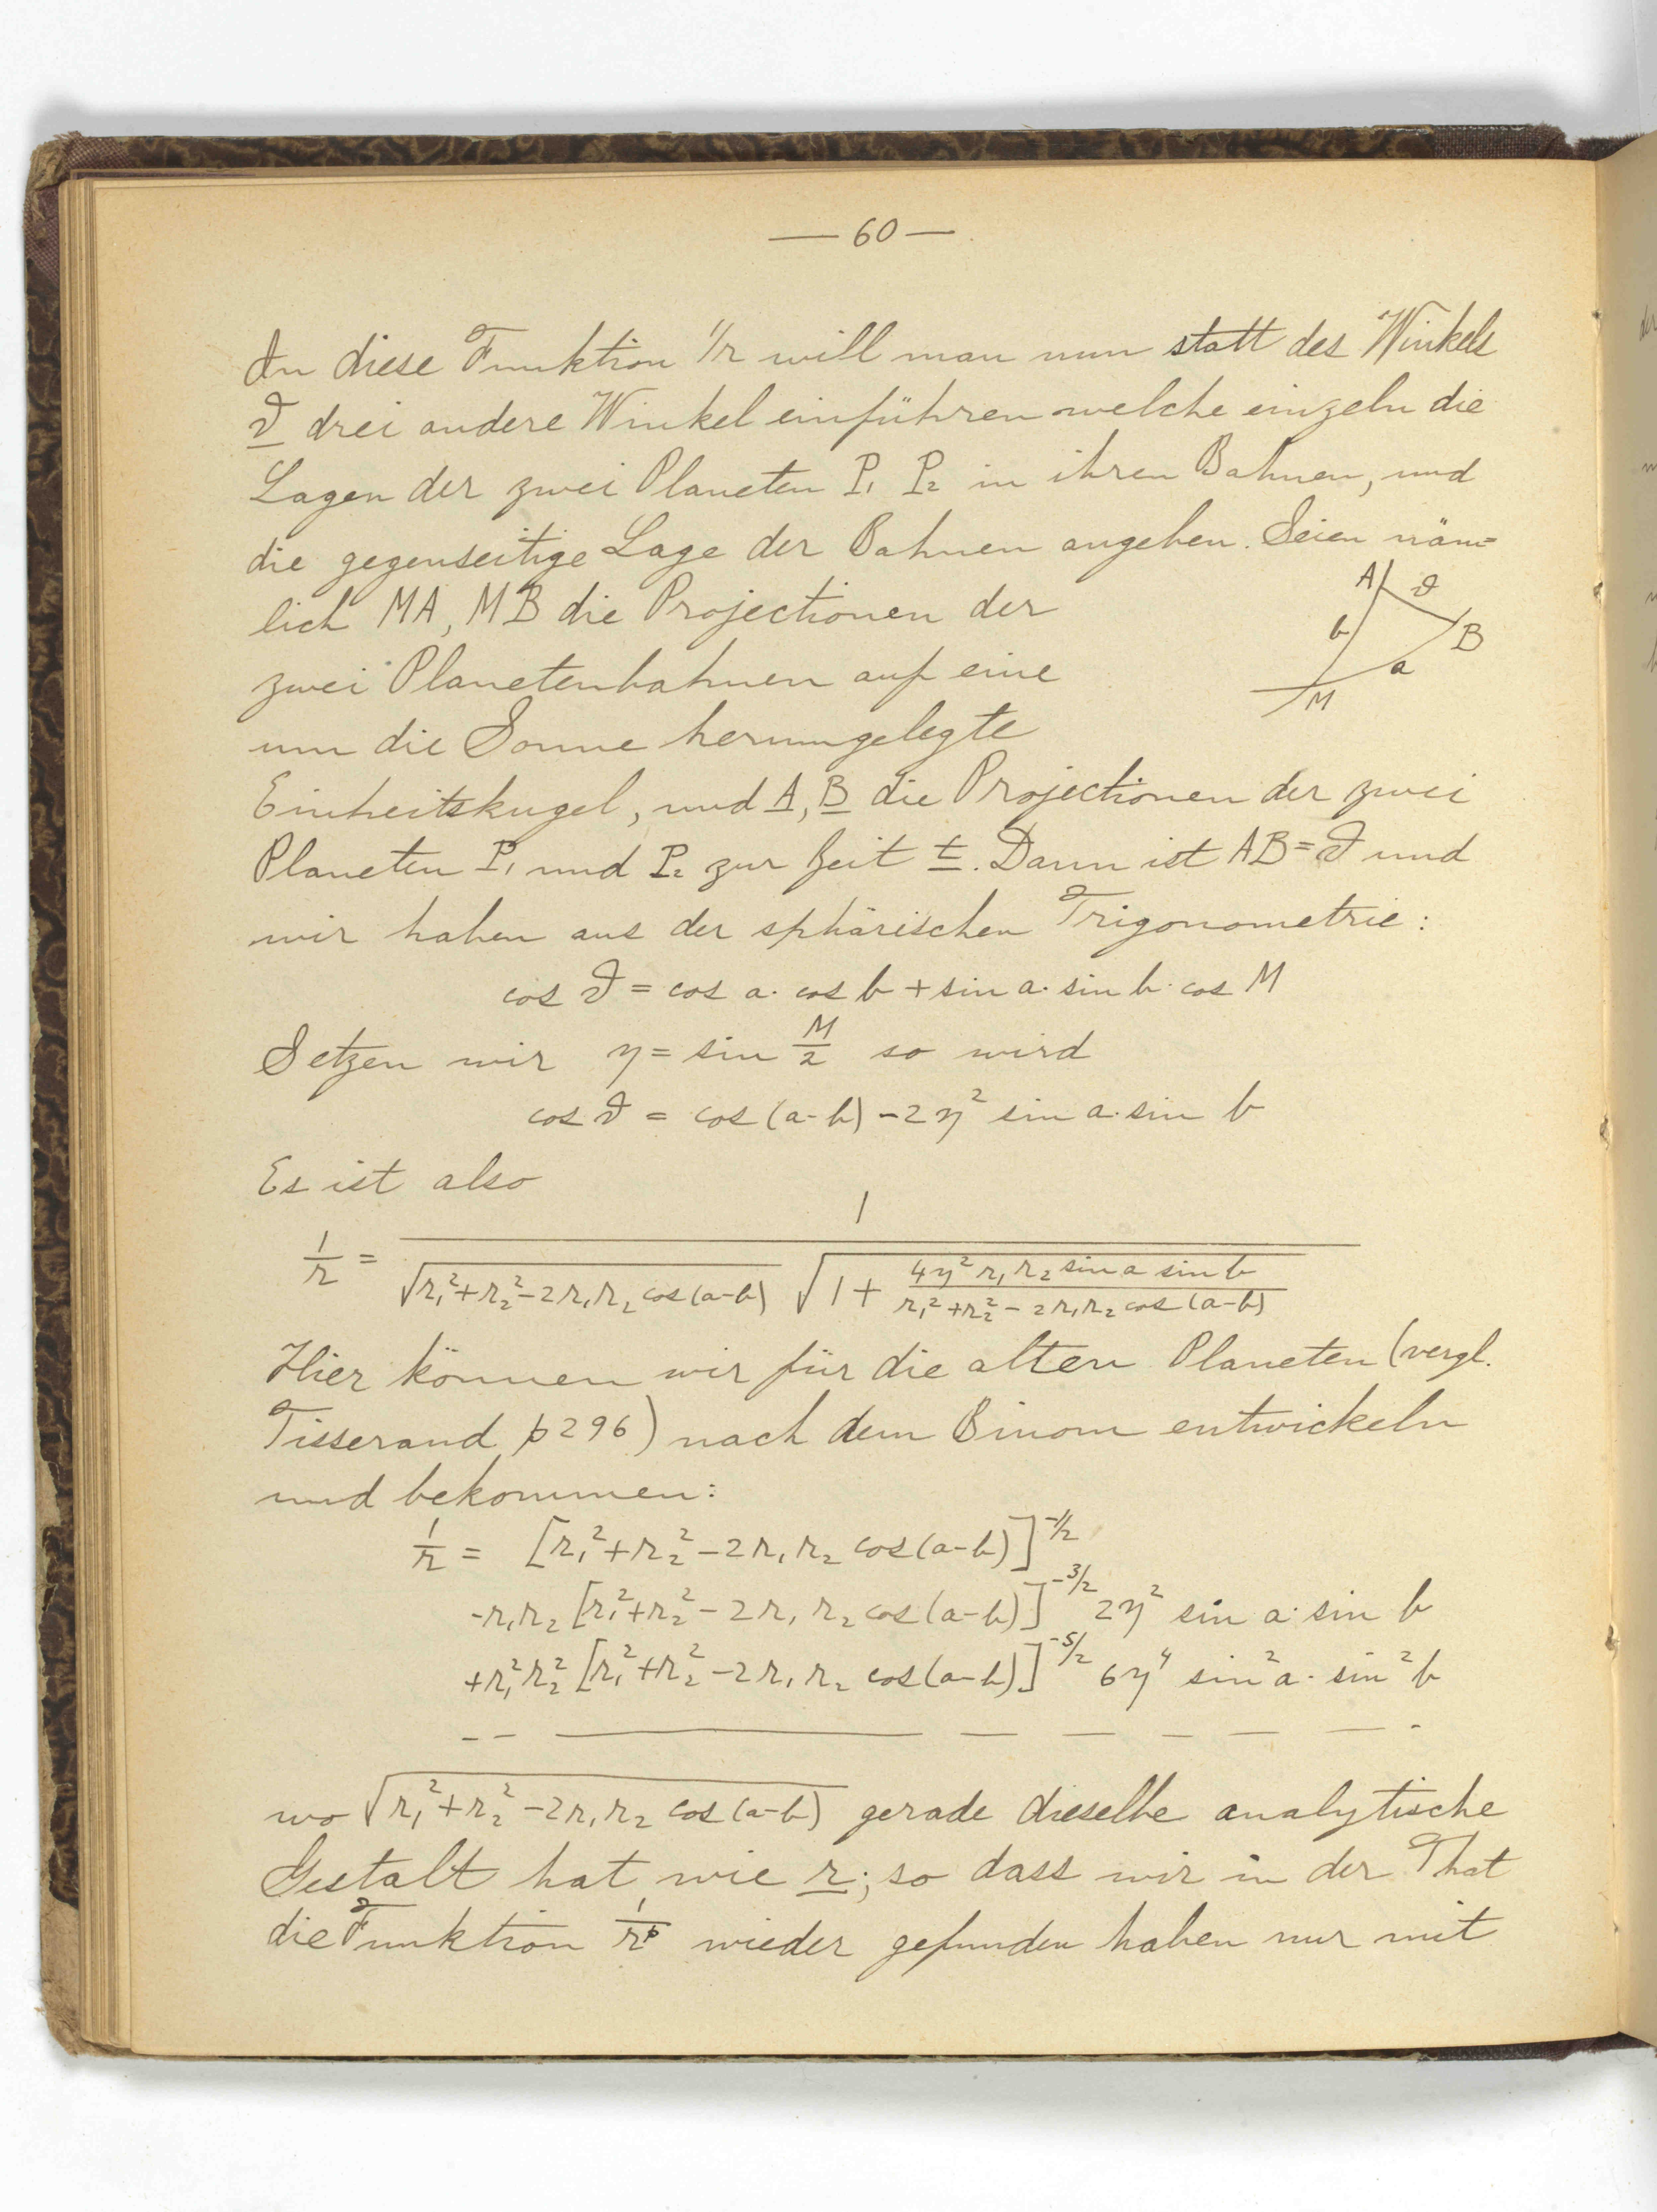 — 60 —
In diese Funktion 1/r will man nun statt des Winkels
ϑ drei andere Winkel einführen welche einzeln die
Lagen der zwei Planeten P₁ P₂ in ihren Bahnen, und
die gegenseitige Lage der Bahnen angeben. Seien näm=
lich MA, MB die Projectionen der
zwei Planetenbahnen auf eine
um die Sonne herumgelegte
A ϑ
b B
a
M
Einheitskugel, und A, B die Projectionen der zwei
Planeten P₁ und P₂ zur Zeit t. Dann ist AB = ϑ und
wir haben aus der sphärischen Trigonometrie:
cos ϑ = cos a · cos b + sin a · sin b · cos M
Setzen wir η = sin M/2 so wird
cos ϑ = cos (a-b) - 2η² sin a · sin b
Es ist also
1/r = 1 / (√(r₁² + r₂² - 2r₁r₂ cos (a-b)) √(1 + (4η² r₁ r₂ sin a sin b)/(r₁² + r₂² - 2r₁r₂ cos (a-b))))
Hier können wir für die alten Planeten (vergl.
Tisserand p 296) nach dem Binom entwickeln
und bekommen:
1/r = [r₁² + r₂² - 2r₁ r₂ cos (a-b)]^-1/2
- r₁r₂ [r₁² + r₂² - 2r₁ r₂ cos (a-b)]^-3/2 2η² sin a · sin b
+ r₁² r₂² [r₁² + r₂² - 2r₁ r₂ cos (a-b)]^-5/2 6η⁴ sin² a · sin² b
— — — — — — — — —
wo √(r₁² + r₂² - 2r₁r₂ cos (a-b)) gerade dieselbe analytische
Gestalt hat, wie r; so dass wir in der That
die Funktion 1/rᵖ wieder gefunden haben nur mit